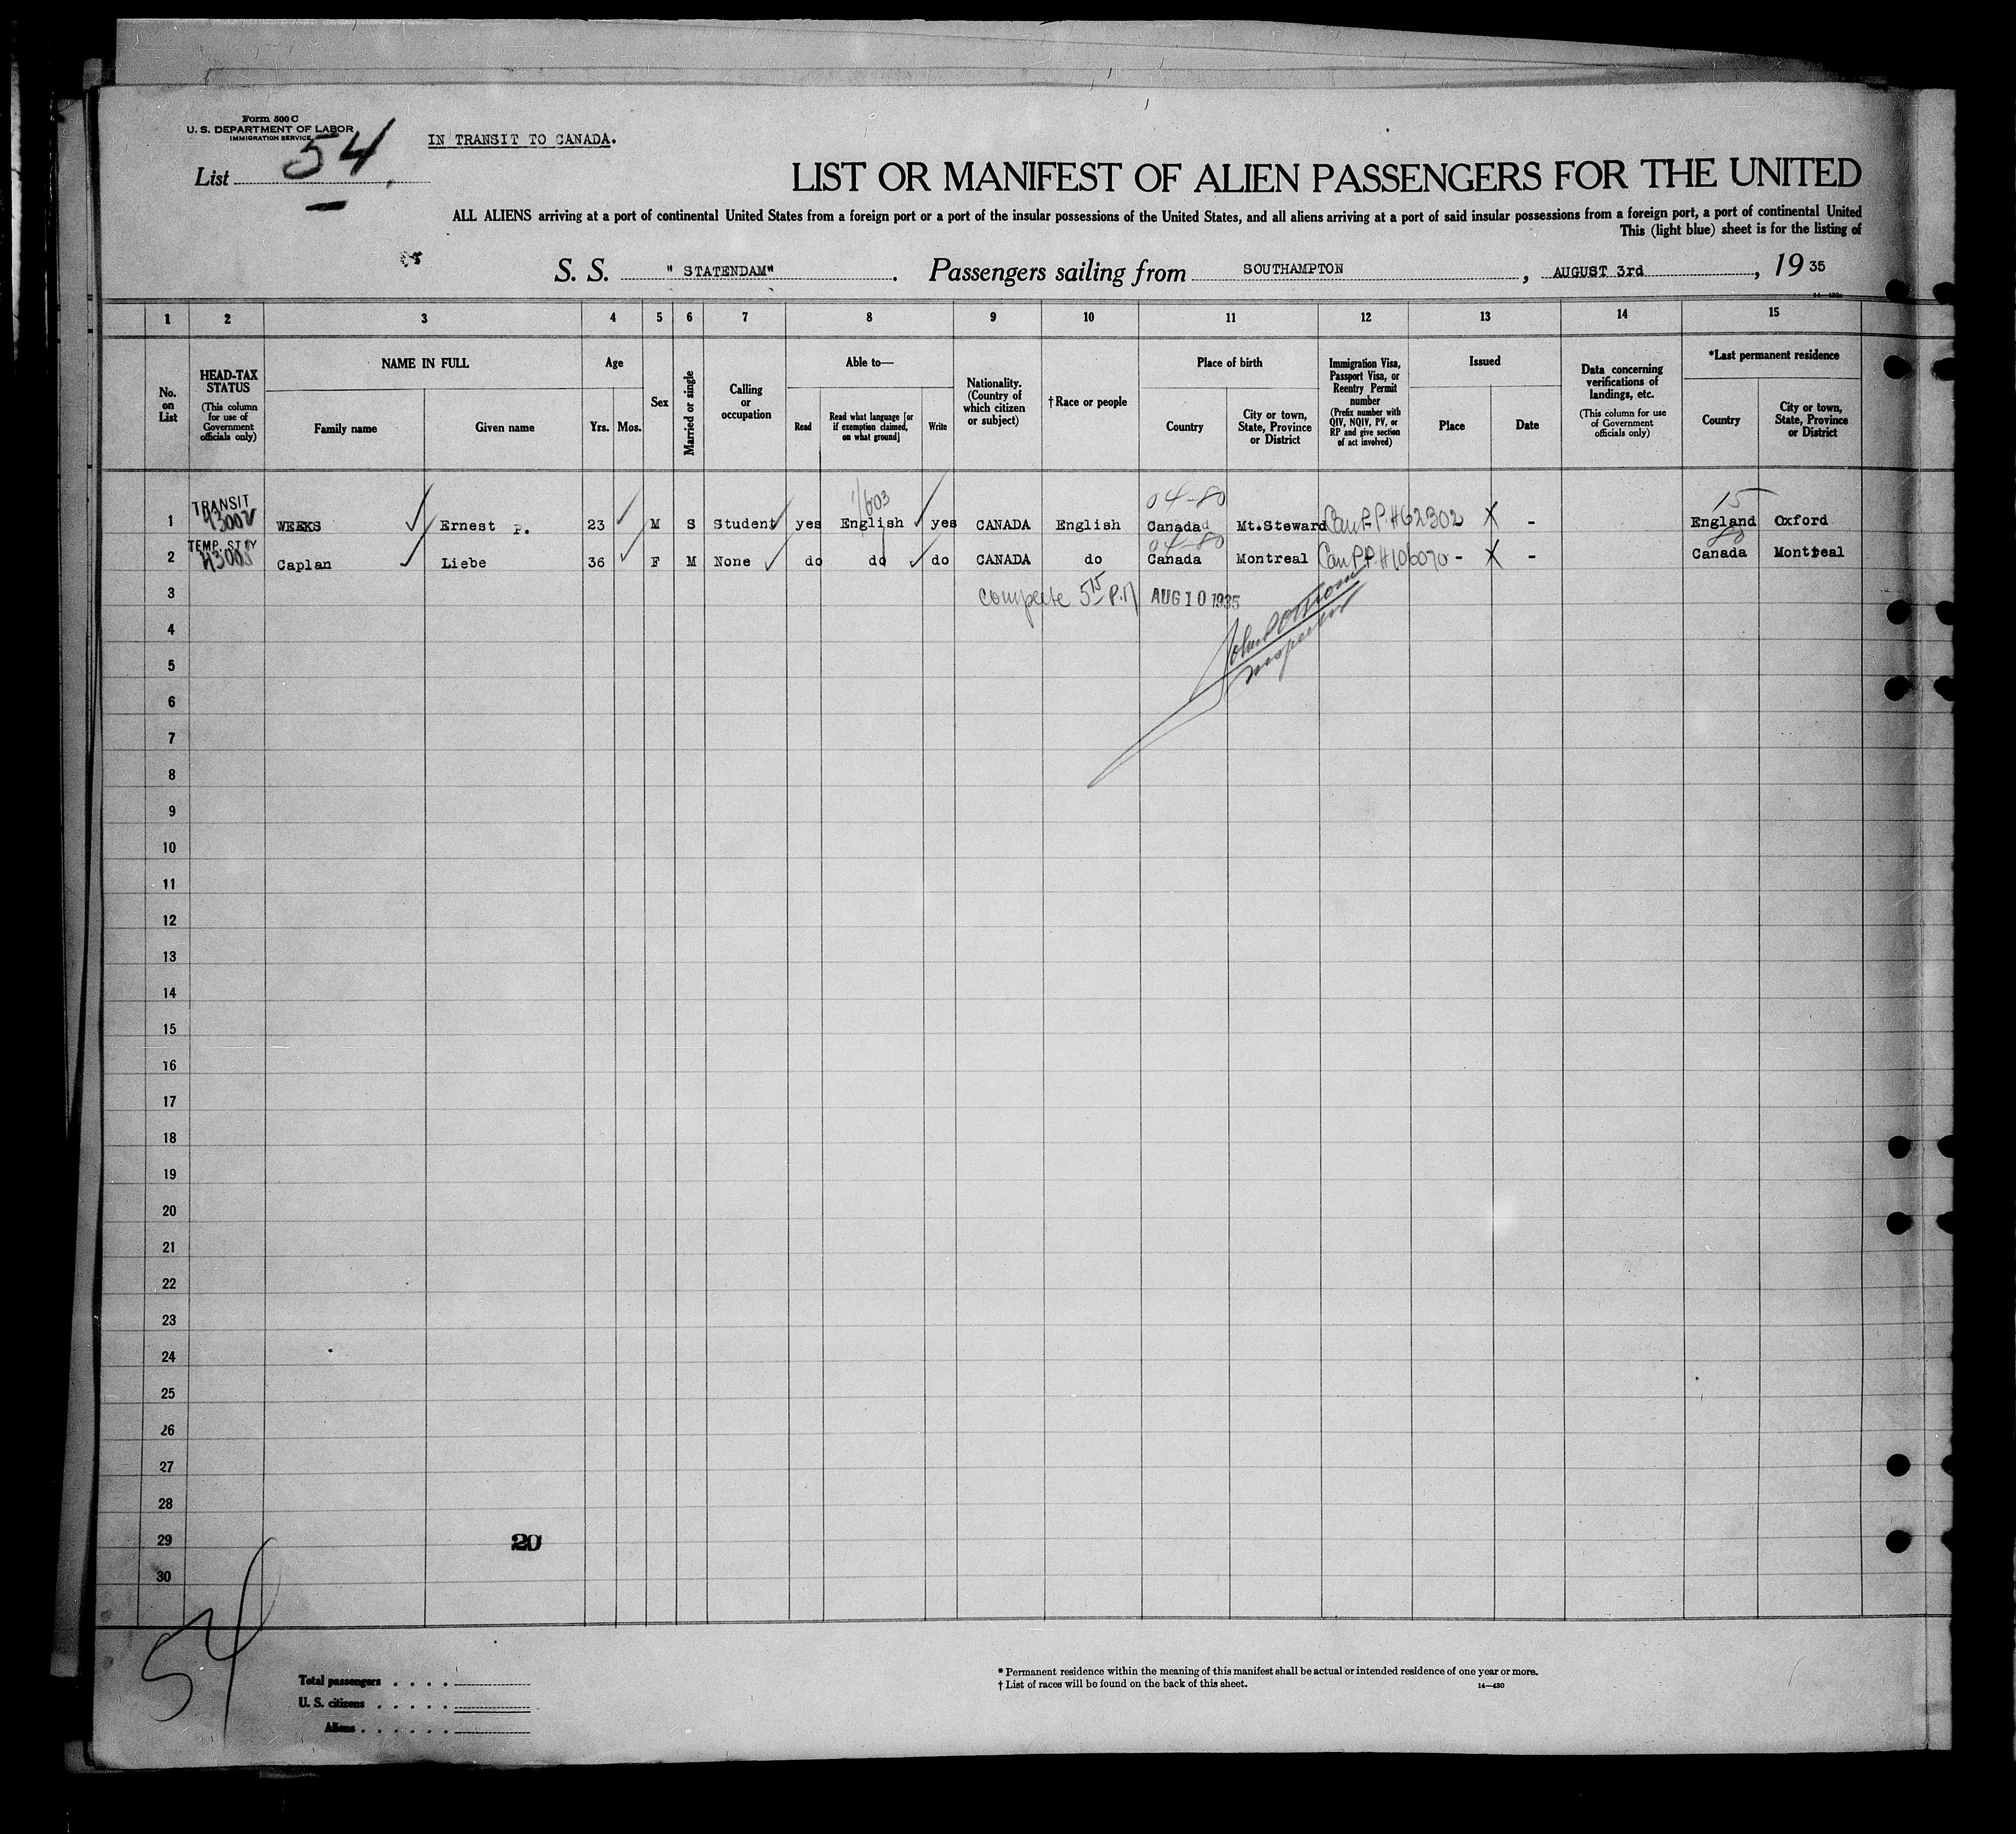 Form 500 C
U. S. DEPARTMENT OF LABOR
IMMIGRATION SERVICE
IN TRANSIT TO CANADA.
List 54
LIST OR MANIFEST OF ALIEN PASSENGERS FOR THE UNITED
ALL ALIENS arriving at a port of continental United States from a foreign port or a port of the insular possessions of the United States, and all aliens arriving at a port of said insular possessions from a foreign port, a port of continental United
This (light blue) sheet is for the listing of
S. S. "STATENDAM". Passengers sailing from SOUTHAMPTON, AUGUST 3rd, 1935
1 2 3 4 5 6 7 8 9 10 11 12 13 14 15
No. on List
HEAD-TAX STATUS (This column for use of Government officials only)
NAME IN FULL
Family name Given name
Age
Yrs. Mos.
Sex
Married or single
Calling or occupation
Able to—
Read Read what language [or if exemption claimed, on what ground] Write
Nationality. (Country of which citizen or subject)
†Race or people
Place of birth
Country City or town, State, Province or District
Immigration Visa, Passport Visa, or Reentry Permit number (Prefix number with QIV, NQIV, PV, or RP and give section of act involved)
Issued
Place Date
Data concerning verifications of landings, etc. (This column for use of Government officials only)
*Last permanent residence
Country City or town, State, Province or District
TRANSIT 04-80 15
1 WEEKS Ernest P. 23 M S Student yes English yes CANADA English Canada Mt.Steward Can P.P. #62302 X - England Oxford
TEMP. STAY 04-80 80
2 Caplan Liebe 36 F M None do do do CANADA do Canada Montreal Can P.P. #106070 - X - Canada Montreal
3 complete 5 15 P.M AUG 10 1935
4
5
6
7
8
9
10
11
12
13
14
15
16
17
18
19
20
21
22
23
24
25
26
27
28
29 20
30
54
Total passengers
U. S. citizens
Aliens
* Permanent residence within the meaning of this manifest shall be actual or intended residence of one year or more.
† List of races will be found on the back of this sheet. 14—430